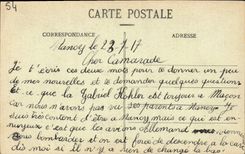 54
CARTE POSTALE
CORRESPONDANCE
ADRESSE
Nancy le 23/7/17
Cher Camarade
Je t'écris ces deux mots pour te donner un peu
de mes nouvelles et te demander quelques questions
Est ce que la Gabriel Hohlin est toujour a Maçon
car nous n'avons pas vu ses parent a Nancy. Je
suis très content d'être a Nancy mais ce qui est en
nuyeux c'est que les avions allemand vienne
nous bombarder et on est forcé de descendre a la cave
dis moi si il n'y a rien de changé la bas.